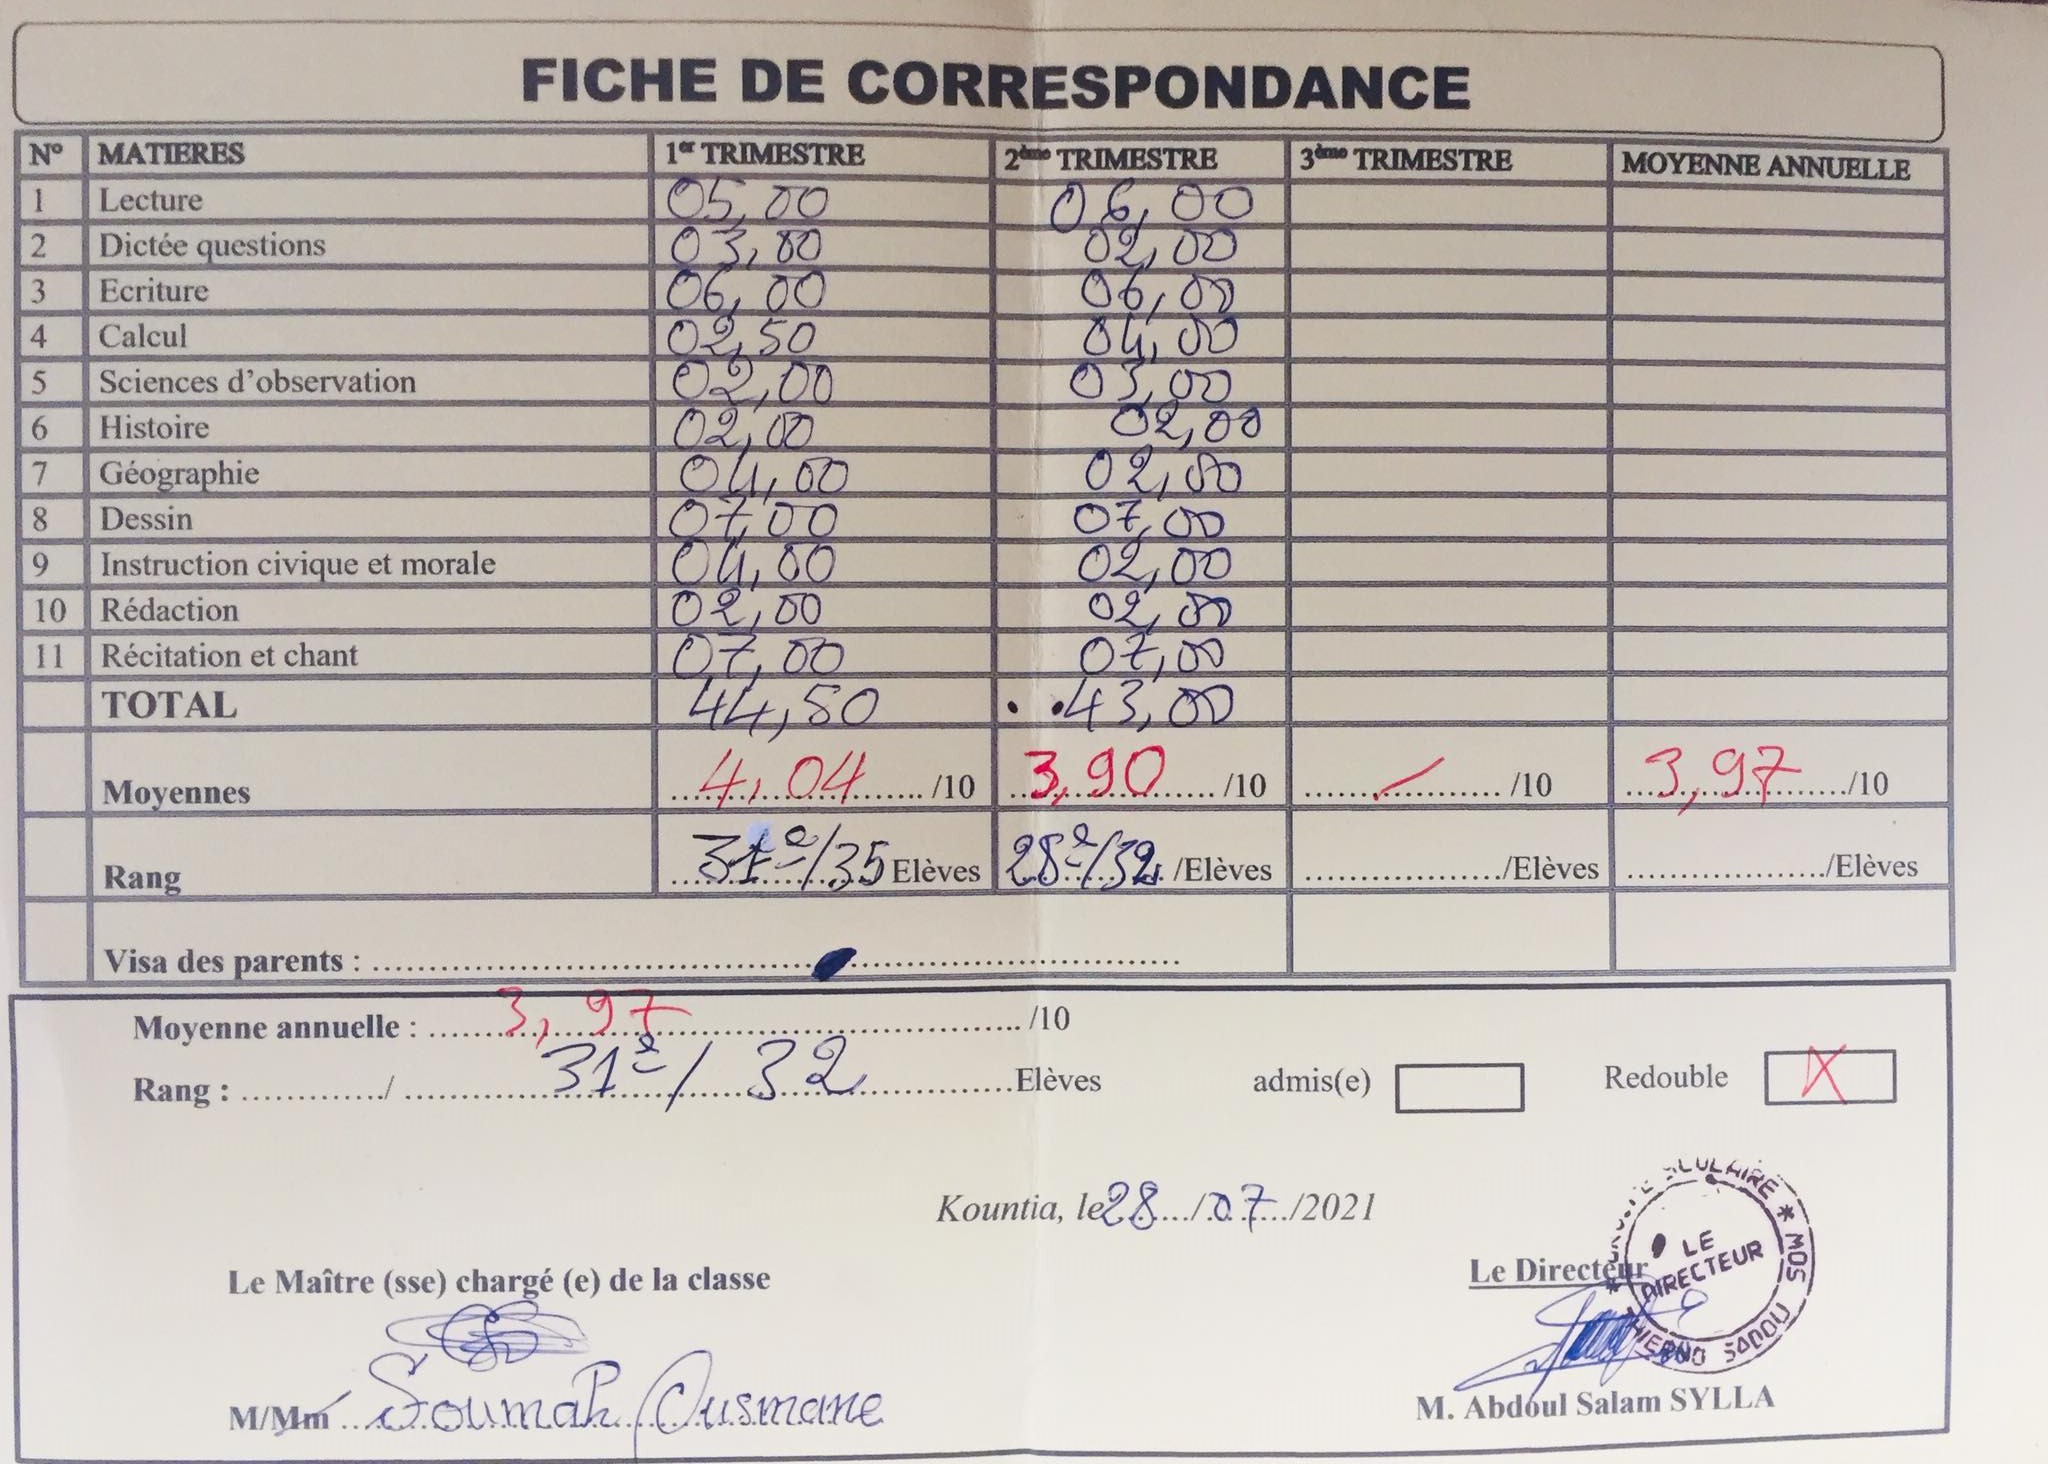 FICHE DE CORRESPONDANCE
N° MATIERES 1er TRIMESTRE 2ème TRIMESTRE 3ème TRIMESTRE MOYENNE ANNUELLE
1 Lecture 05,00 06,00
2 Dictée questions 03,00 02,00
3 Ecriture 06,00 06,00
4 Calcul 02,50 04,00
5 Sciences d'observation 02,00 03,00
6 Histoire 02,00 02,00
7 Géographie 04,00 02,00
8 Dessin 07,00 07,00
9 Instruction civique et morale 04,00 02,00
10 Rédaction 02,00 02,00
11 Récitation et chant 07,00 07,00
TOTAL 44,50 43,00
Moyennes 4,04 /10 3,90 /10 /10 3,97 /10
Rang 31e/35 Elèves 28e/32 /Elèves /Elèves /Elèves
Visa des parents :
Moyenne annuelle : 3,97 /10
Rang : / 31e/ 32 Elèves admis(e) Redouble X
Kountia, le 28/07/2021
Le Maître (sse) chargé (e) de la classe Le Directeur
SCOLAIRE * MOS
LE DIRECTEUR
SADOU
M/Mm Soumah Ousmane M. Abdoul Salam SYLLA